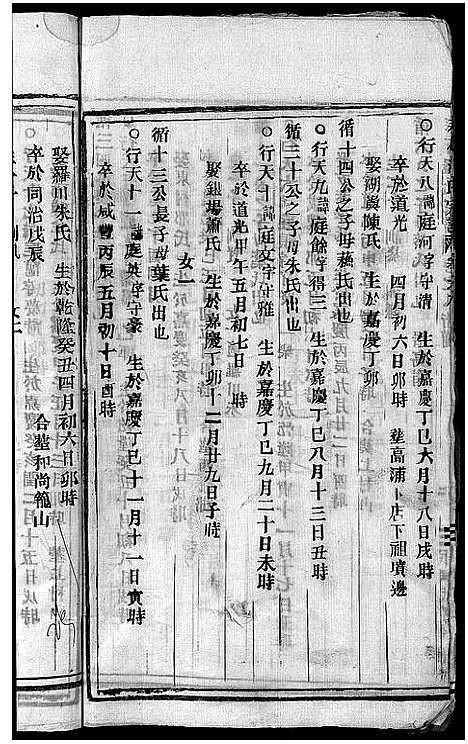 ○行天八諱庭河字守清　生於嘉慶丁巳六月十八日戌時
卒於道光　四月初六日卯時　塟高浦卜店下祖墳邊
娶湖裝陳氏　生於嘉慶丁卯
循十四公之子母蘓氏出也
○行天九諱庭餘字得三　生於嘉慶丁巳八月十三日丑時
循三十公之子母朱氏出也
○行天十諱庭文字守雅　生於嘉慶丁巳九月二十日未時
卒於道光甲午五月初七日　時
娶銀場蕭氏　生於嘉慶丁卯十二月廿九日子時
女一
循十三公長子母葉氏出也
○行天十一諱庭英字守豪　生於嘉慶丁巳十一月十一日寅時
卒於咸豐丙辰五月初十日酉時
娶羅川朱氏　生於乾隆癸丑四月初六日卯時
卒於同治戊辰　合塟和尚籠山